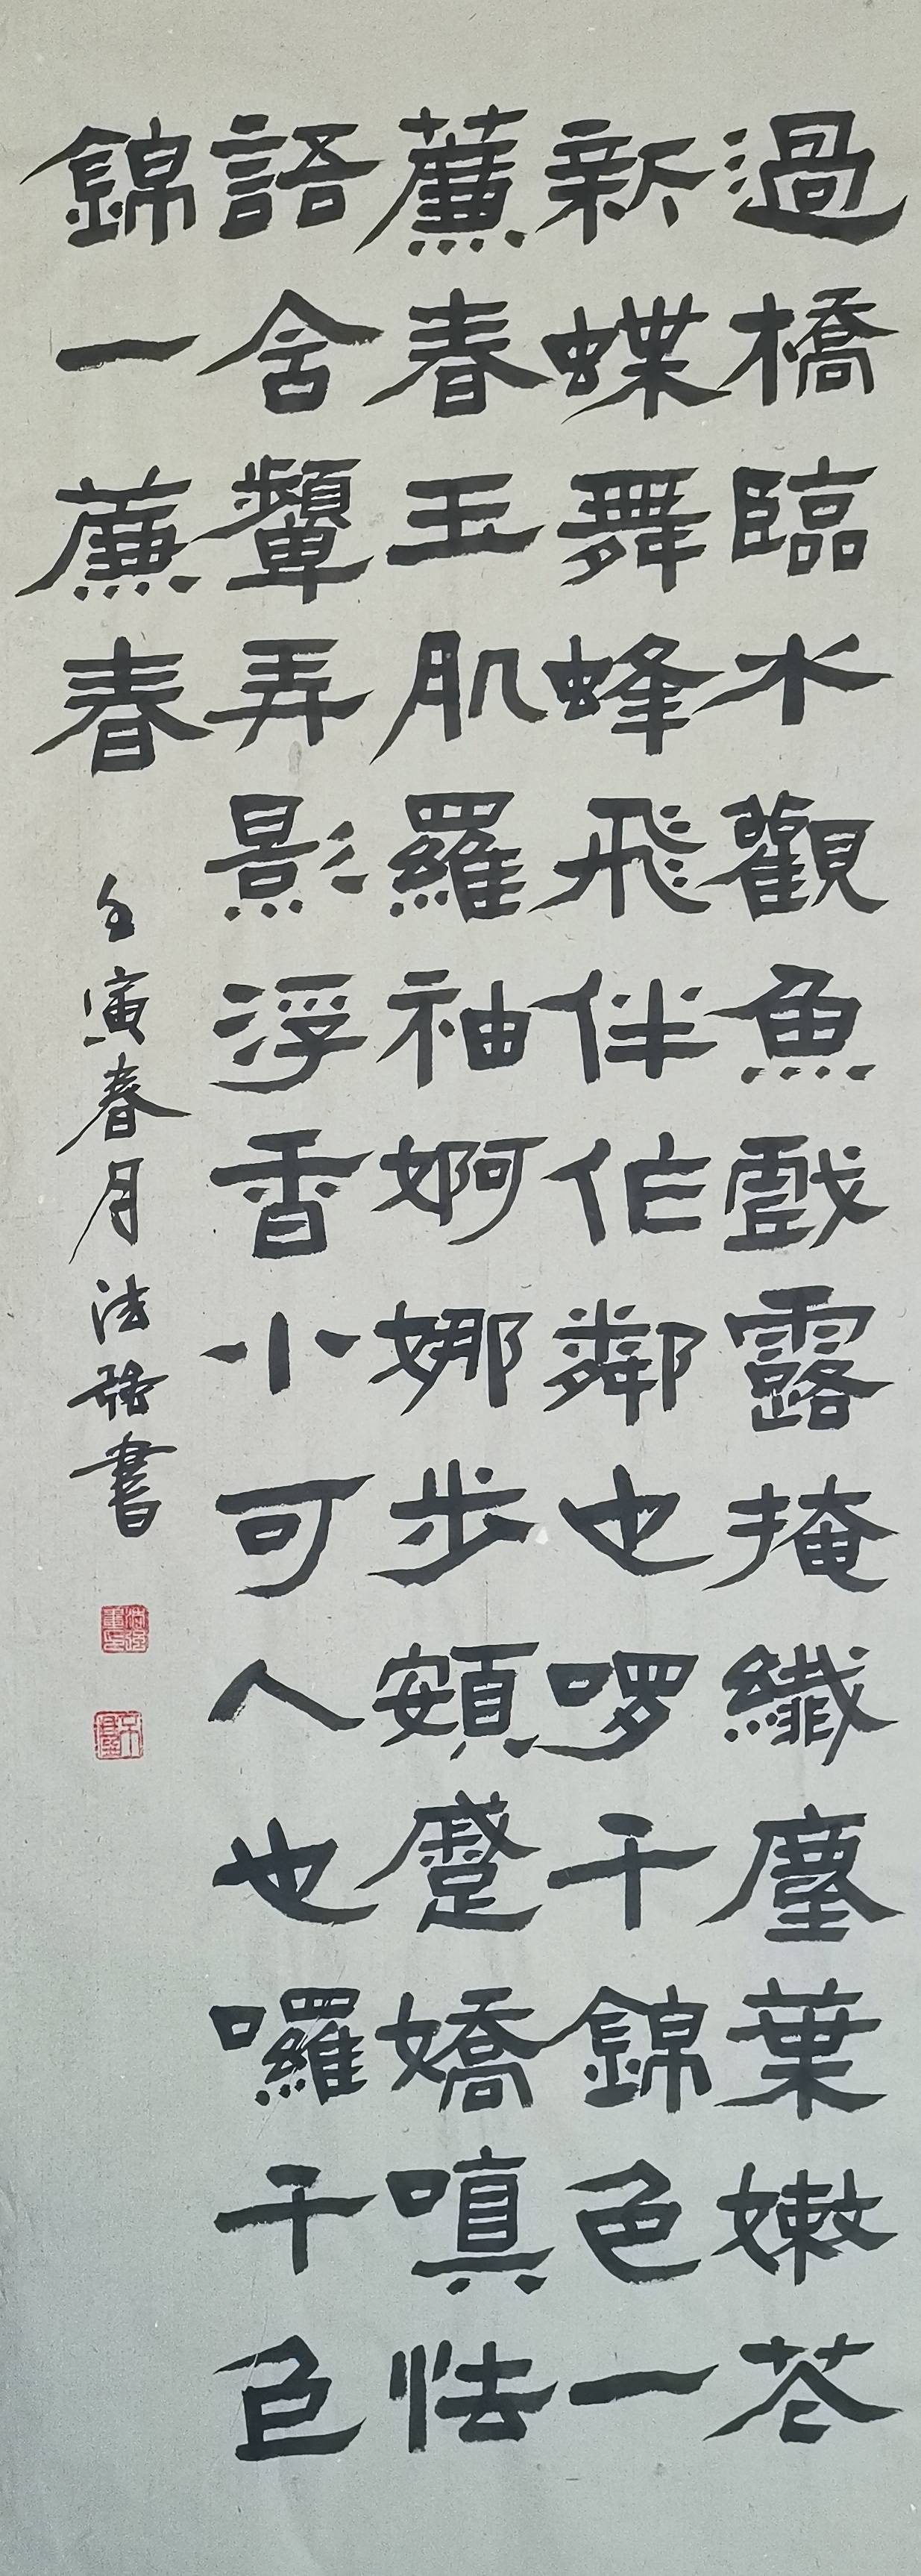 過橋臨水觀魚戲露掩纖塵葉嫩花
新蝶舞蜂飛伴作鄰也啰千錦色一
薕春玉肌羅袖婀娜步頞蹙嬌嗔怯
語含顰弄影浮香小可人也囉千色
錦一薕春
壬寅春月法強書